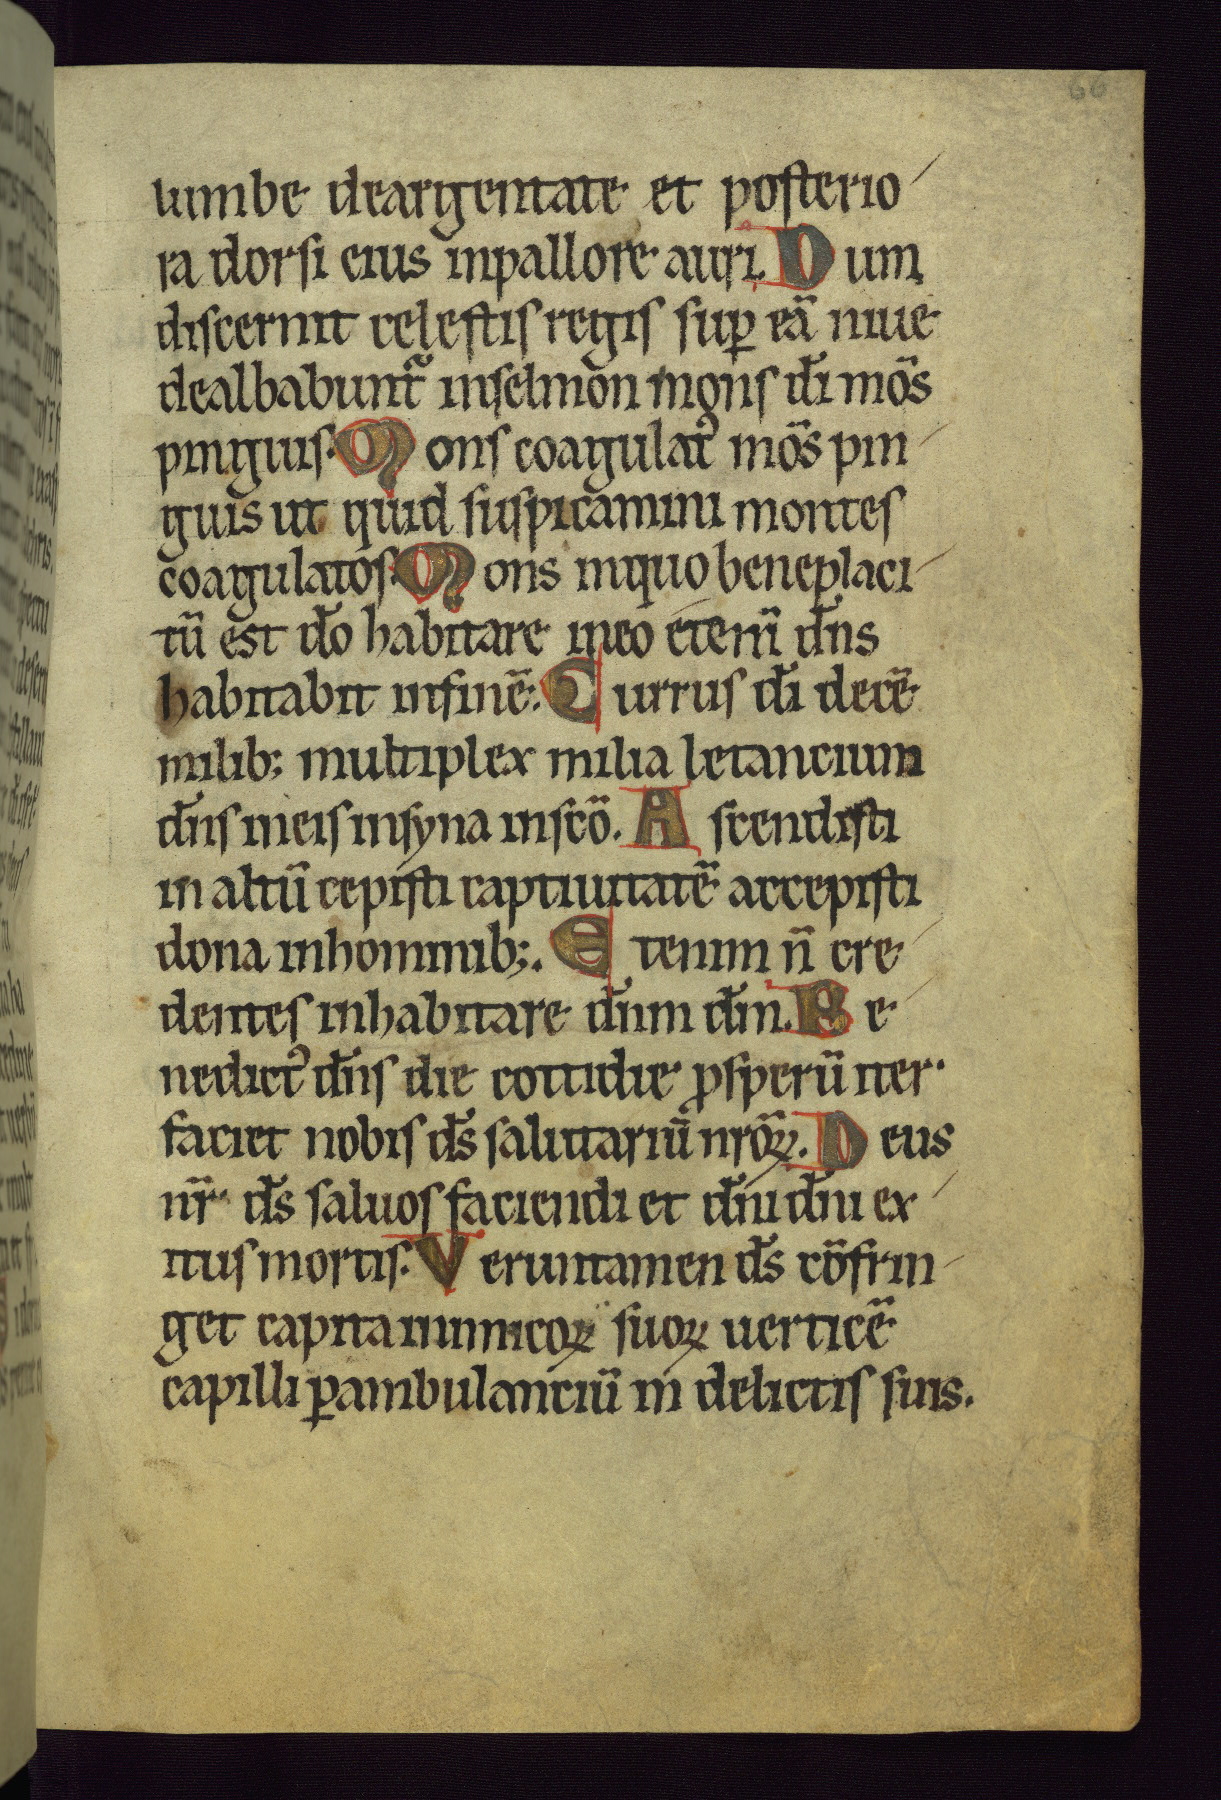 66
lumbe deargentate et posterio
ra dorsi eius inpallore auri. Dum
discernit celestis regis sup̱ eā niue
dealbabunt᷑ inselmon mons d̄i mōs
pinguis. Mons coagulat᷒ mōs pin
guis ut quid suspicamini montes
coagulatos. Mons inquo beneplaci
tū est d̄o habitare ineo eteni᷑ d̄ns
habitabit infinē. Currus d̄i decē
milib; multiplex milia letancium
d̄ns meis insyna inscō. Ascendisti
in altū cepisti captiuitatē accepisti
dona inhominib;. Etenim n̄ cre
dentes inhabitare d̄nm d̄m. Be
nedict᷒ d̄ns die cottidie ꝓsperū iter
faciet nobis d̄s salutariū nr̄oꝝ. Deus
nr̄ d̄s saluos faciendi et d̄ni d̄ni ex
itus mortis. Veruntamen d̄s cōfrin
get capita inimicoꝝ suoꝝ uerticē
capilli ꝑambulanciū in delictis suis.